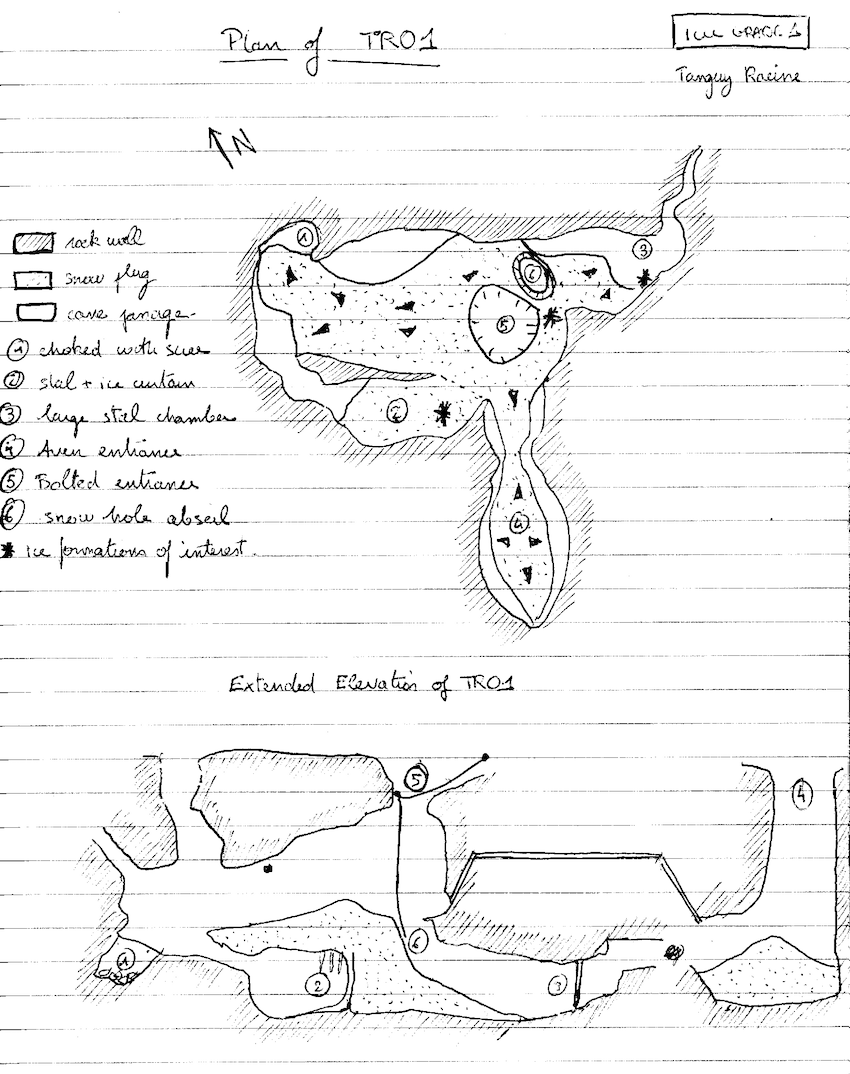 Plan of TR01
ICU GRADE 1
Tanguy Racine
N
rock wall
snow plug
cave passage
① choked with scree
② stal + ice curtain
③ large stal chamber
④ Aven entrance
⑤ Bolted entrance
⑥ snow hole abseil
* ice formations of interest.
1
6
3
5
2
4
Extended Elevation of TR01
5
4
6
1
2
3